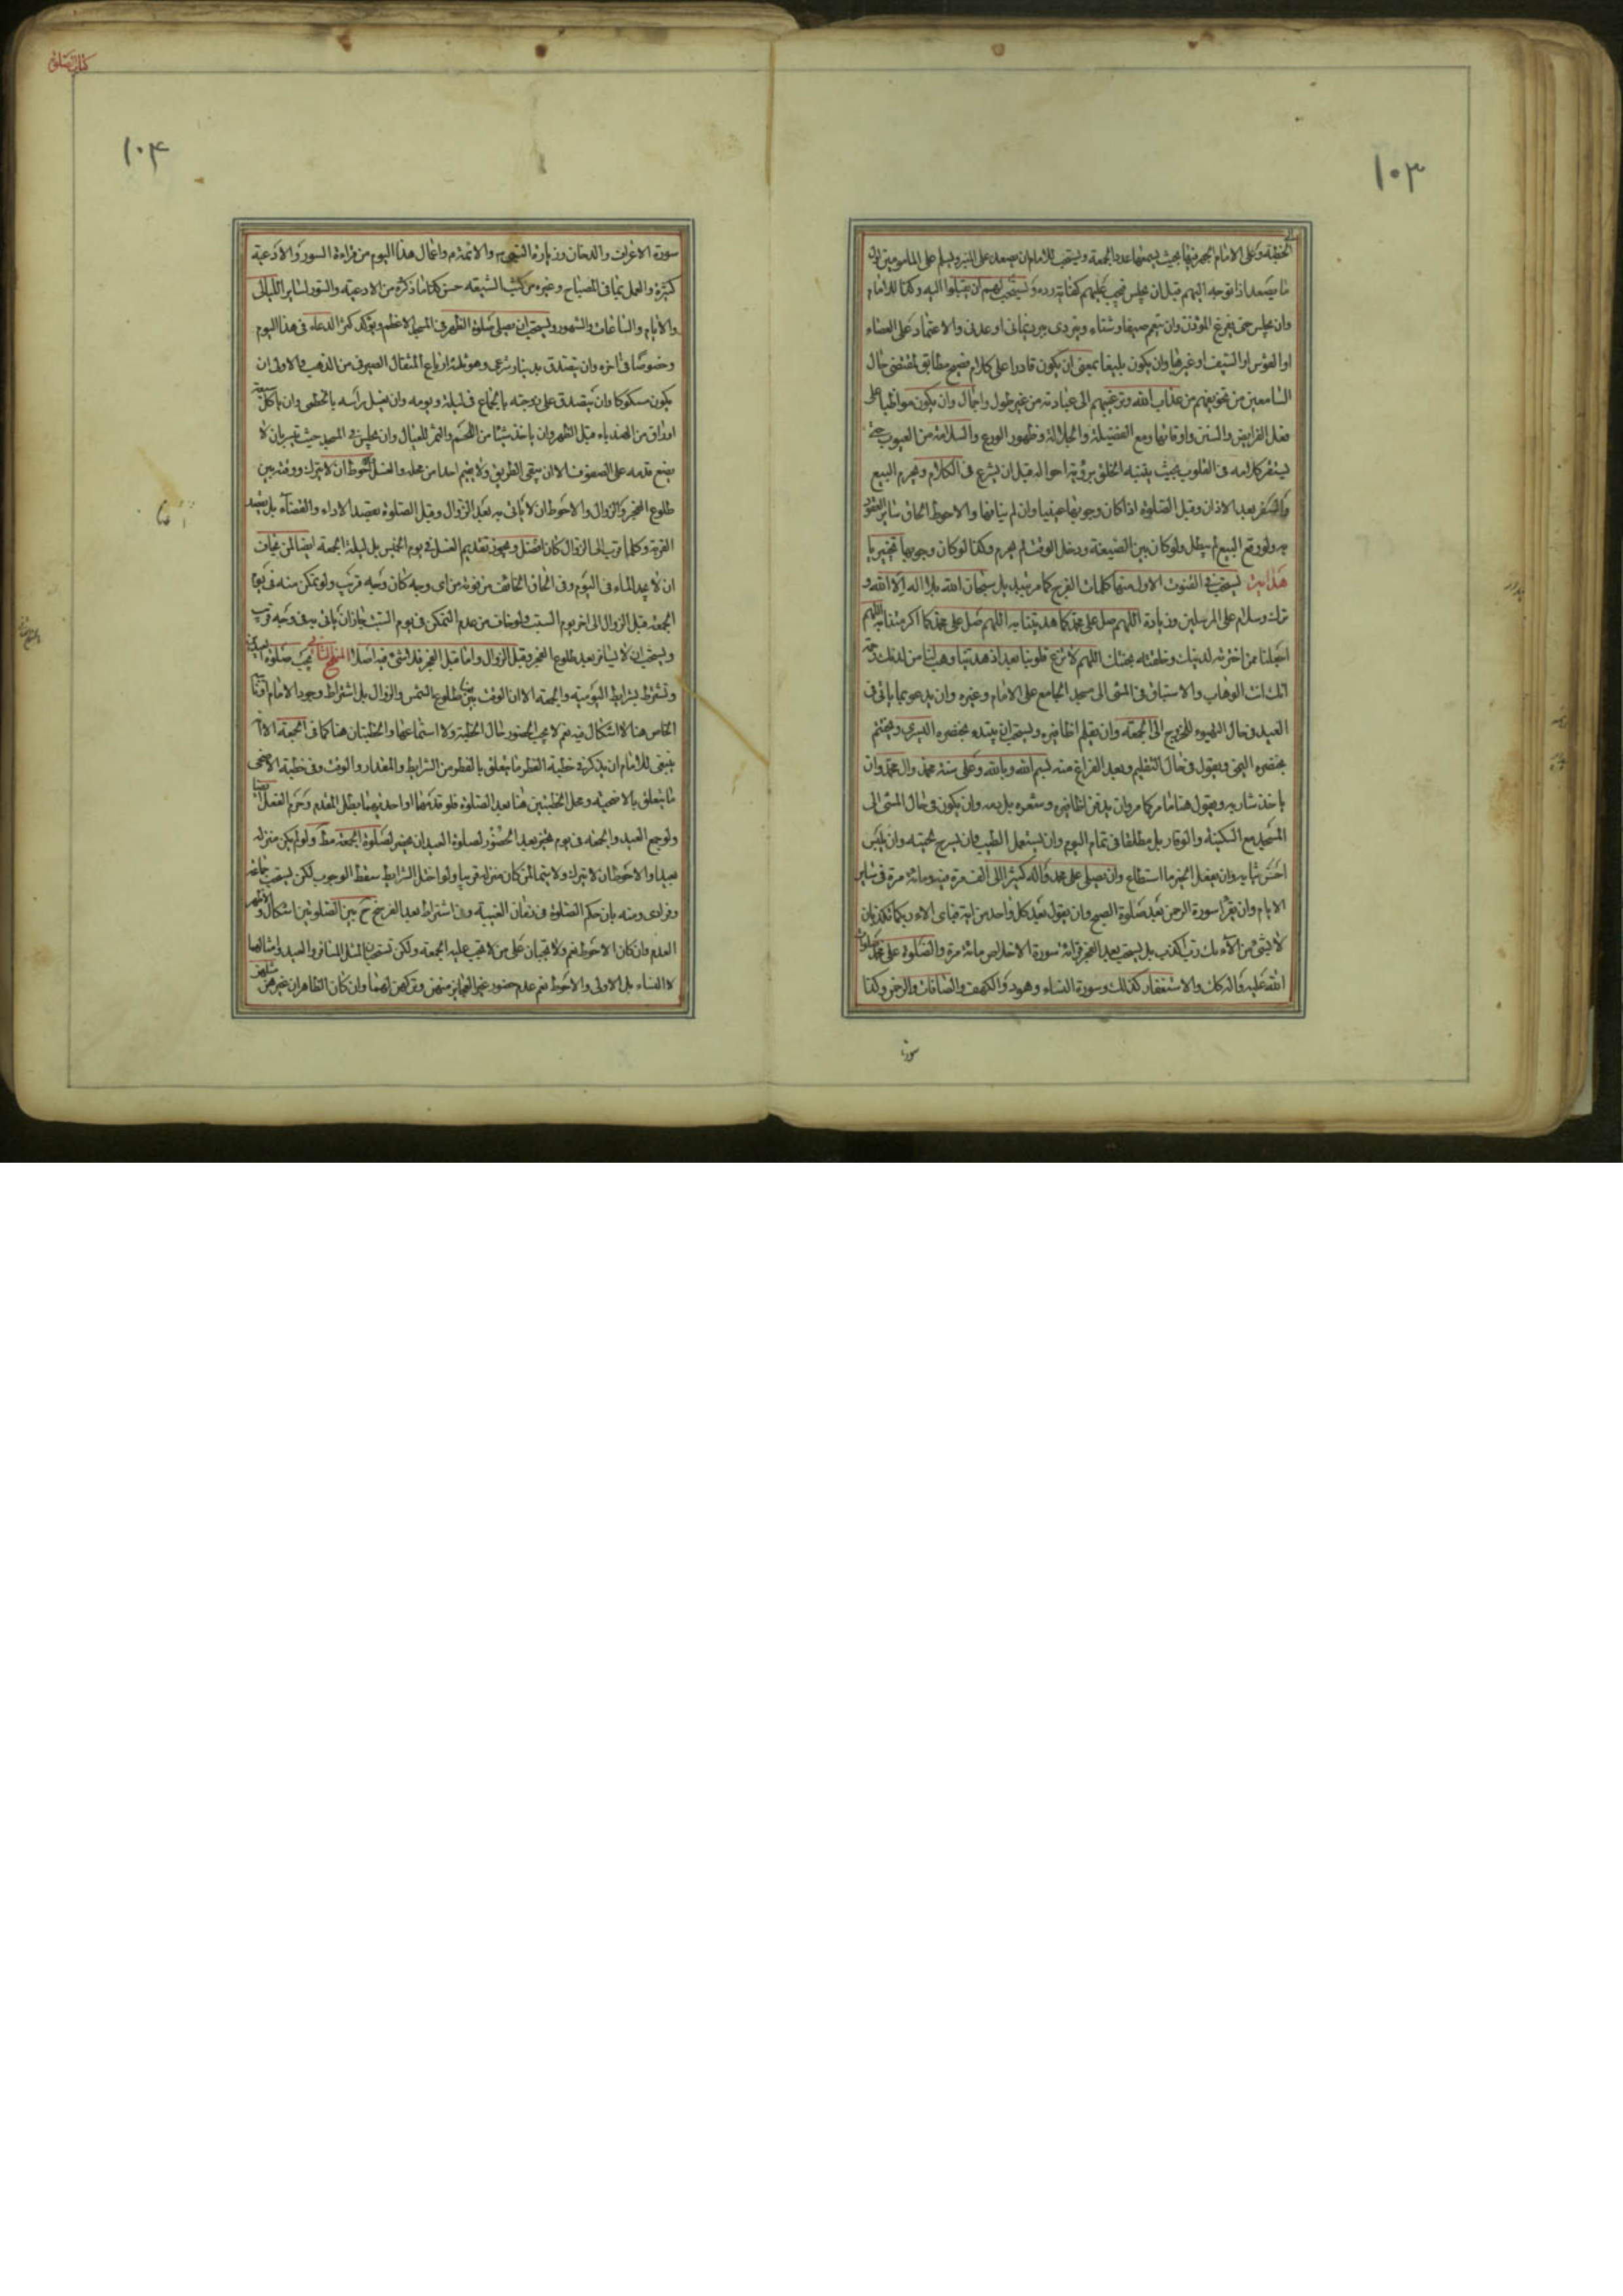 ١٠٣
الخطبة وعلى الامام الجهر فيها بحيث يسمعها عدد الجمعة ويستحب للامام ان يصعد على المنبر ويسلم على المامومين اول
ما يصعد اذا توجه اليهم قبل ان يجلس فيجب عليهم كفاية رده ويستحب لهم ان يقبلوا اليه وكذا للامام
وان يجلس حتى يفرغ المؤذن وان يتعمم صيفا وشتاء ويتردى ببرد يمانى او عدنى والاعتماد على العصاء
او القوس او السيف او غيرها وان يكون بليغا بمعنى ان يكون قادرا على كلام فصيح مطابق لمقتضى حال
السامعين من تخويفهم من عذاب الله وترغيبهم الى عبادته من غير طول واجمال وان يكون مواظبا على
فعل الفرايض والسنن واوقاتها ومع الفضيلة والجلالة وظهور الورع والسلامة من العيوب حتى
ليستقر كلامه فى القلوب بحيث يتنبه الخلق برؤية احواله قبل ان يشرع فى الكلام ويحرم البيع
بعد الاذان وقبل الصلوة اذا كان وجوبها عينيا وان لم ينافها والاحوط الحاق سائر العقود
به ولو وقع البيع لم يبطل ولو كان بين الصيغة ودخل الوقت لم يحرم وكذا لو كان وجوبها تخييريا
هداية يستحب فى القنوت الاول منها كلمات الفرج كما مر بل سبحان الله بلا اله الا الله و
ترك وسلام على المرسلين وزيادة اللهم صل على محمد كما هديتنا به اللهم صل على محمد كما اكرمتنا به اللهم
اجعلنا ممن اخترته لدينك وخلقته لجنتك اللهم لا تزغ قلوبنا بعد اذ هديتنا وهب لنا من لدنك رحمة
انك انت الوهاب والاستباق فى المشى الى مسجد الجامع على الامام وغيره وان يدعو بما ياتى فى
العيد فى حال التهيوء للخروج الى الجمعة وان يقلم اظافيره ويستحب ان يبتدء بخنصره اليسرى ويختم
بخنصره اليمنى ويقول فى حال التقليم وبعد الفراغ منه بسم الله وبالله وعلى سنة محمد وال محمد وان
ياخذ شاربه ويقول هنا ما مر كما مر وان يدفن اظافيره وشعره بل دمه وان يكون فى حال المشى الى
المسجد مع السكينة والوقار بل مطلقا فى تمام اليوم وان يستعمل الطيب وان يسرح لحيته وان يلبس
احسن ثيابه وان يفعل الخير ما استطاع وان يصلى على محمد واله كثيرا الى الف مرة فيه ومائة مرة فى ساير
الايام وان يقرأ سورة الرحمن بعد صلوة الصبح وان يقول بعد كل واحد من اية فباى الاء ربكما تكذبان
لا بشئ من آلائك رب اكذب بل يستحب بعد الفجر قرائة سورة الاخلاص مائة مرة والصلوة على محمد صلوات
الله عليه واله كك والاستغفار كذلك وسورة النساء وهود والكهف والصافات والرحمن وكذا
سورة
كتاب الصلوة
١٠۴
سورة الاعراف والدخان وزيارة النبى ص والائمة ع واعمال هذا اليوم من قراءة السور والادعية
كثيرة والعمل بما فى المصباح وغيره من كتب الشيعة حسن كما ما ذكره من الادعية والسور لساير الليالى
والايام والساعات والشهور ويستحب ان يصلى صلوة الظهر فى المسجد الاعظم ويؤكد كثر الدعاء فى هذا اليوم
وخصوصا فى اخره وان يتصدق بدينار شرعى وهو ثلثة ارباع المثقال الصيرفى من الذهب والاولى ان
يكون مسكوكا وان يتصدق على زوجته بالجماع فى ليلة ويومه وان يغسل رأسه بالخطمى وان ياكل سبعة
اوراق من الهندباء قبل الظهر وان ياخذ شيئا من اللحم والتمر للعيال وان يجلس فى المسجد حيث تيسر بان لا
يضع قدمه على الصفوف الا ان يبقى الطريق ولا يقيم احدا من محله والغسل الاحوط ان لا يترك ووقته بين
طلوع الفجر والزوال والاحوط ان لا ياتى به بعد الزوال وقبل الصلوة بقصد الاداء والقضاء بل بقصد
القربة وكلما قرب الى الزوال كان افضل ويجوز تقديم الغسل فى يوم الخميس بل ليلة الجمعة ايضا لمن يخاف
ان لا يجد الماء فى اليوم وفى الحاق الخائف من فوته من اى وجه كان وجه قريب ولو تمكن منه فى يوم
الجمعة قبل الزوال الى اخر يوم السبت ولو خاف من عدم التمكن فى يوم السبت جاز ان ياتى به فى وجه قريب
ويستحب ان لا يسافر بعد طلوع الفجر وقبل الزوال واما قبل الفجر فلا شئ فيه اصلا المنهج الثانى تجب صلوة العيدين
وتشترط بشرايط اليومية والجمعة الا ان الوقت بين طلوع الشمس والزوال بل اشتراط وجود الامام
الخاص هنا لا اشكال فيه نعم لا يجب الحضور حال الخطبة ولا استماعها والخطبتان هنا كما فى الجمعة الا انه
ينبغى للامام ان يذكر فى خطبة الفطر ما يتعلق بالفطر من الشرايط والمقدار والوقت وفى خطبة الاضحى
ما يتعلق بالاضحية ومحل الخطبتين هنا بعد الصلوة فلو قدمهما او احديهما بطل المقدم وحرم الفعل ايضا
ولو جمع العيد والجمعة فى يوم تخير بعد الحضور لصلوة العيد ان يحضر لصلوة الجمعة مط ولو لم يكن منزله
بعيدا والاحوط ان لا يترك ولا سيما لمن كان منزله قريبا ولو اختل الشرايط سقط الوجوب لكن يستحب جماعة
وفرادى ومنه بان حكم الصلوة فى زمان الغيبة وفى اشتراط بعد الفرسخ ح بين الصلوتين اشكال والاشهر
العدم وان كان الاحوط نعم ولا تجبان على من لا تجب عليه الجمعة ولكن تستحبان لمثل المسافر والعبد وامثالهما
لا النساء بل الاولى والاحوط نعم عدم حضور غير العجايز منهن وتركهن لهما وان كان الظاهر ان غيرهن مثلهن